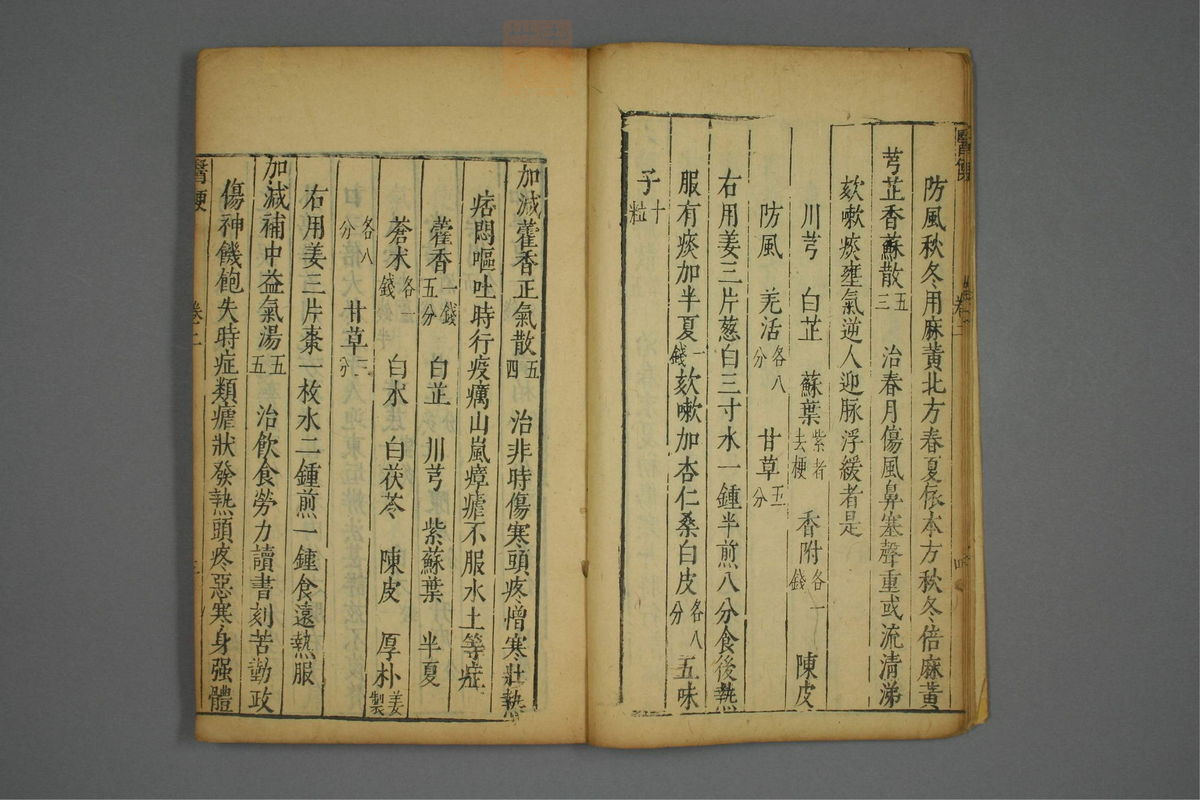 防風秋冬用麻黃北方春夏依本方秋冬倍麻黃
芎芷香蘇散五三 治春月傷風鼻塞聲重或流清涕
欬嗽痰壅氣逆人迎脉浮緩者是
川芎 白芷 蘇葉紫者去梗 香附各一錢 陳皮
防風 羌活各八分 甘草五分
右用姜三片葱白三寸水一鍾半煎八分食後熱
服有痰加半夏一錢欬嗽加杏仁桑白皮各八分五味
子十粒
加減藿香正氣散五四 治非時傷寒頭疼憎寒壯熱
痞悶嘔吐時行疫癘山嵐瘴瘧不服水土等症
藿香一錢五分 白芷 川芎 紫蘇葉 半夏
蒼朮各一錢 白朮 白茯苓 陳皮 厚朴姜製
各八分 甘草三分
右用姜三片棗一枚水二鍾煎一鍾食遠熱服
加減補中益氣湯五五 治飲食勞力讀書刻苦勤政
傷神饑飽失時症類瘧狀發熱頭疼惡寒身强體
醫便 卷二